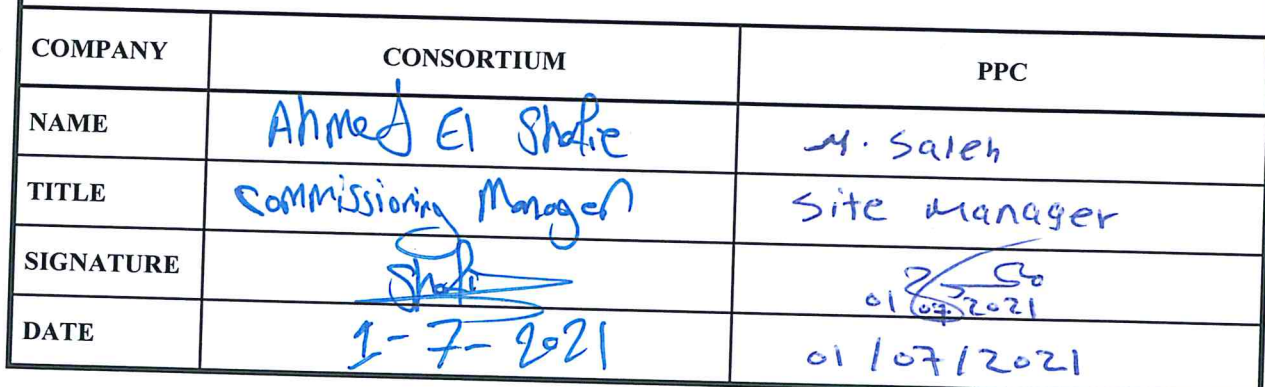 COMPANY CONSORTIUM PPC
NAME Ahmed El Shafie M. Saleh
TITLE Commissioning Manager Site Manager
SIGNATURE Shafi
01/07/2021
DATE 1-7-2021 01/07/2021